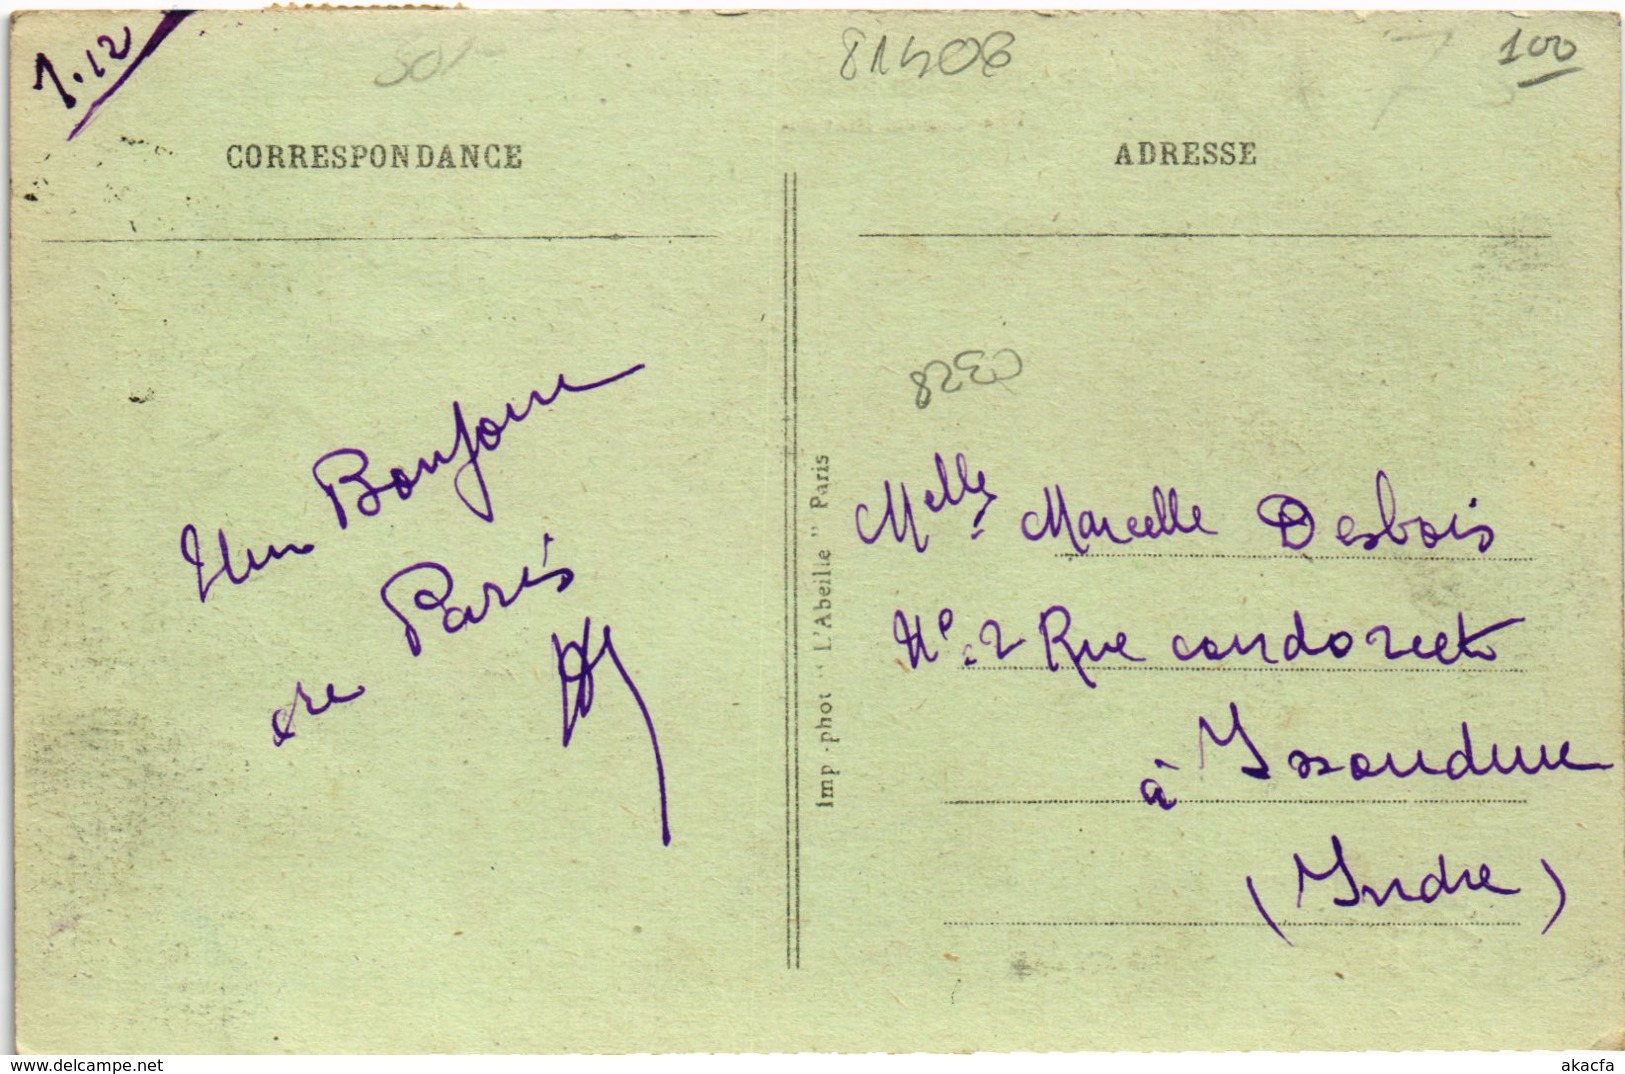 1.12
50
81406
100
CORRESPONDANCE
ADRESSE
Un Bonjour
de Paris
Imp.-phot "L'Abeille" Paris
Melle Marcelle Desbois
No. 2 Rue condorcet
à Issoudun
(Indre)
www.delcampe.net
akacfa